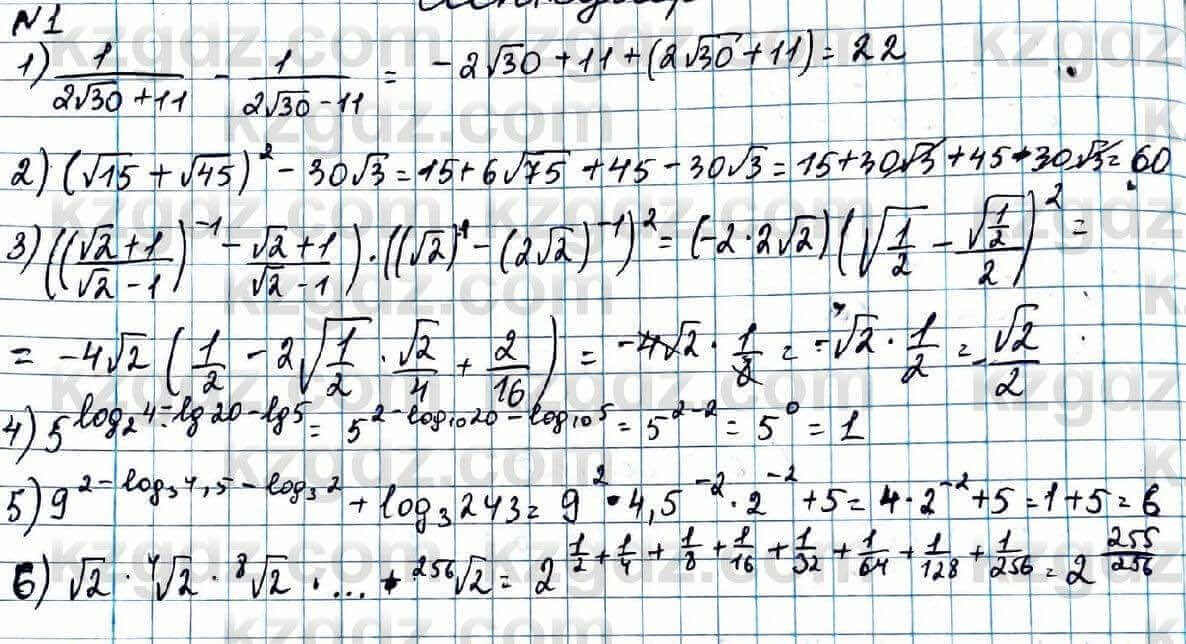 №1
1) 1/(2√30 + 11) - 1/(2√30 - 11) = -2√30 + 11 + (2√30 + 11) = 22
2) (√15 + √45)² - 30√3 = 15 + 6√75 + 45 - 30√3 = 15 + 30√3 + 45 - 30√3 = 60
3) (((√2 + 1)/(√2 - 1))⁻¹ - (√2 + 1)/(√2 - 1)) · ((√2)⁻¹ - (2√2)⁻¹)² = (-2 · 2√2)(√(1/2) - √(1/2)/2)² =
= -4√2 (1/2 - 2√(1/2) · √2/4 + 2/16) = -4√2 · 1/8 = -√2 · 1/2 = -√2/2
4) 5^(log₂4 - lg20 - lg5) = 5^(2 - log₁₀20 - log₁₀5) = 5^(2-2) = 5⁰ = 1
5) 9^(2 - log₃4,5 - log₃2) + log₃243 = 9² · 4,5⁻² · 2⁻² + 5 = 4 · 2⁻² + 5 = 1 + 5 = 6
6) √2 · ⁴√2 · ⁸√2 · ... · ²⁵⁶√2 = 2^(1/2 + 1/4 + 1/8 + 1/16 + 1/32 + 1/64 + 1/128 + 1/256) = 2^(255/256)
kzgdz.com